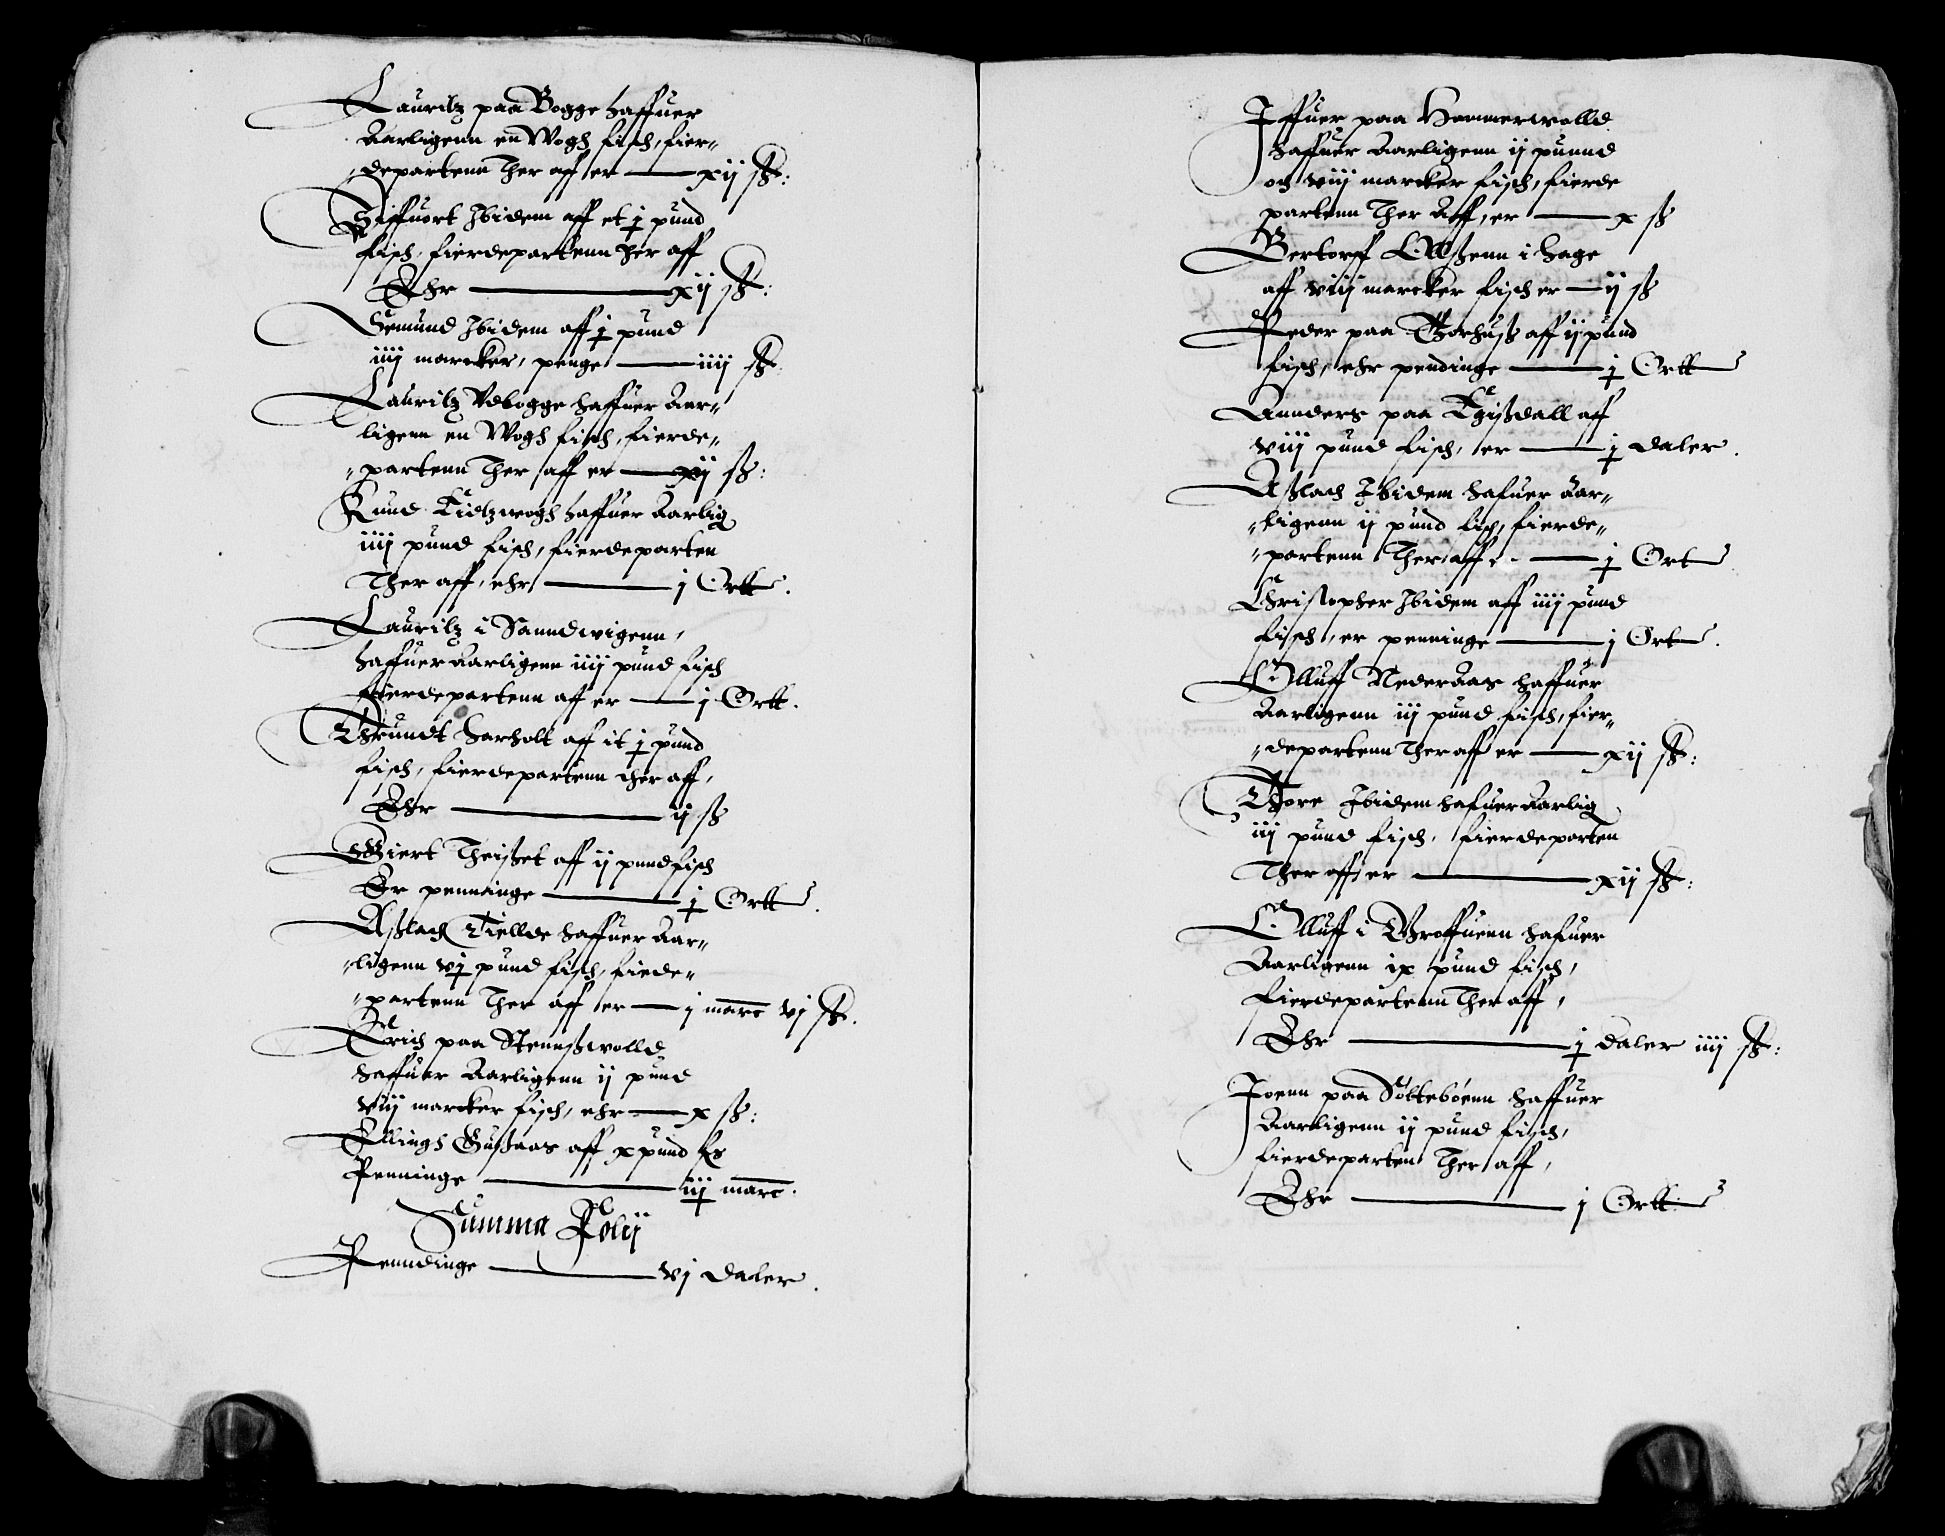 Lauritz paa Bogge haffuer
Aarligenn en Wogh fisch, fier-
departenn Ther aff er — xij ß:
Siffuort Ibidem aff et j pund
fisch, fierdepartenn ther aff
Ehr — xij ß:
Semund Ibidem aff j pund
iiij marcker, penge — iiij ß
Lauritz Vdbogge haffuer Aar-
ligenn en Wogh fisch, fierde-
partenn Ther aff er — xij ß:
Knud Tidtzwogh haffuer Aarlig
iiij pund fisch, fierdeparten
Ther aff, ehr — j Ortt.
Lauritz i Sanndwigenn,
haffuer Aarligenn iiij pund fisch
fierdepartenn af er — j Ortt.
Thrundt Harholt aff it j pund
fisch, fierdepartenn ther aff,
Ehr — ij ß
Giert Theißet aff ij pund fisch
Er penninge — j Ortt.
Aßlach Tiellde haffuer Aar-
ligenn vj pund fisch, fiede-
partenn Ther aff er — j marc vj ß.
Erich paa Stennßwolld
haffuer Aarligenn ij pund
viij marcker fisch, ehr — x ß:
Ellingh Gußaas aff x pund fs
Penninge — iij marc.
Summa Folij
Penndinge — vj daler.
Iffuer paa Hammerwolld
haffuer Aarligenn ij punnd
och viij marcker fisch, fierde
partenn Ther Aff, er — x ß
Bertorff Ollßenn i Hage
aff viij marcker fisch er — ij ß
Peder paa Torhuß aff ij pund
fisch, ehr pendinge — j Ortt
Annders paa Tyißdall aff
viij pund fisch, er — j daler.
Aßlach Ibidem hafuer Aar-
ligenn ij pund fisch, fierde-
partenn Ther aff — j Ort
Christopher Ibidem aff iiij pund
fisch, er penninge — j Ort.
Olluff Nederaas haffuer
Aarligenn iij pund fisch, fier-
departenn Ther aff er — xij ß:
Thore Ibidem hafuer Aarlig
iij pund fisch, fierdeparten
Ther aff er — xij ß:
Olluff i Groffuenn hafuer
Aarligenn ix pund fisch,
fierdepartenn Ther aff,
Ehr — j daler iiij ß:
Joenn paa Söttebôenn haffuer
Aarligenn ij pund fisch,
fierdeparten Ther aff,
Ehr — j Ortt